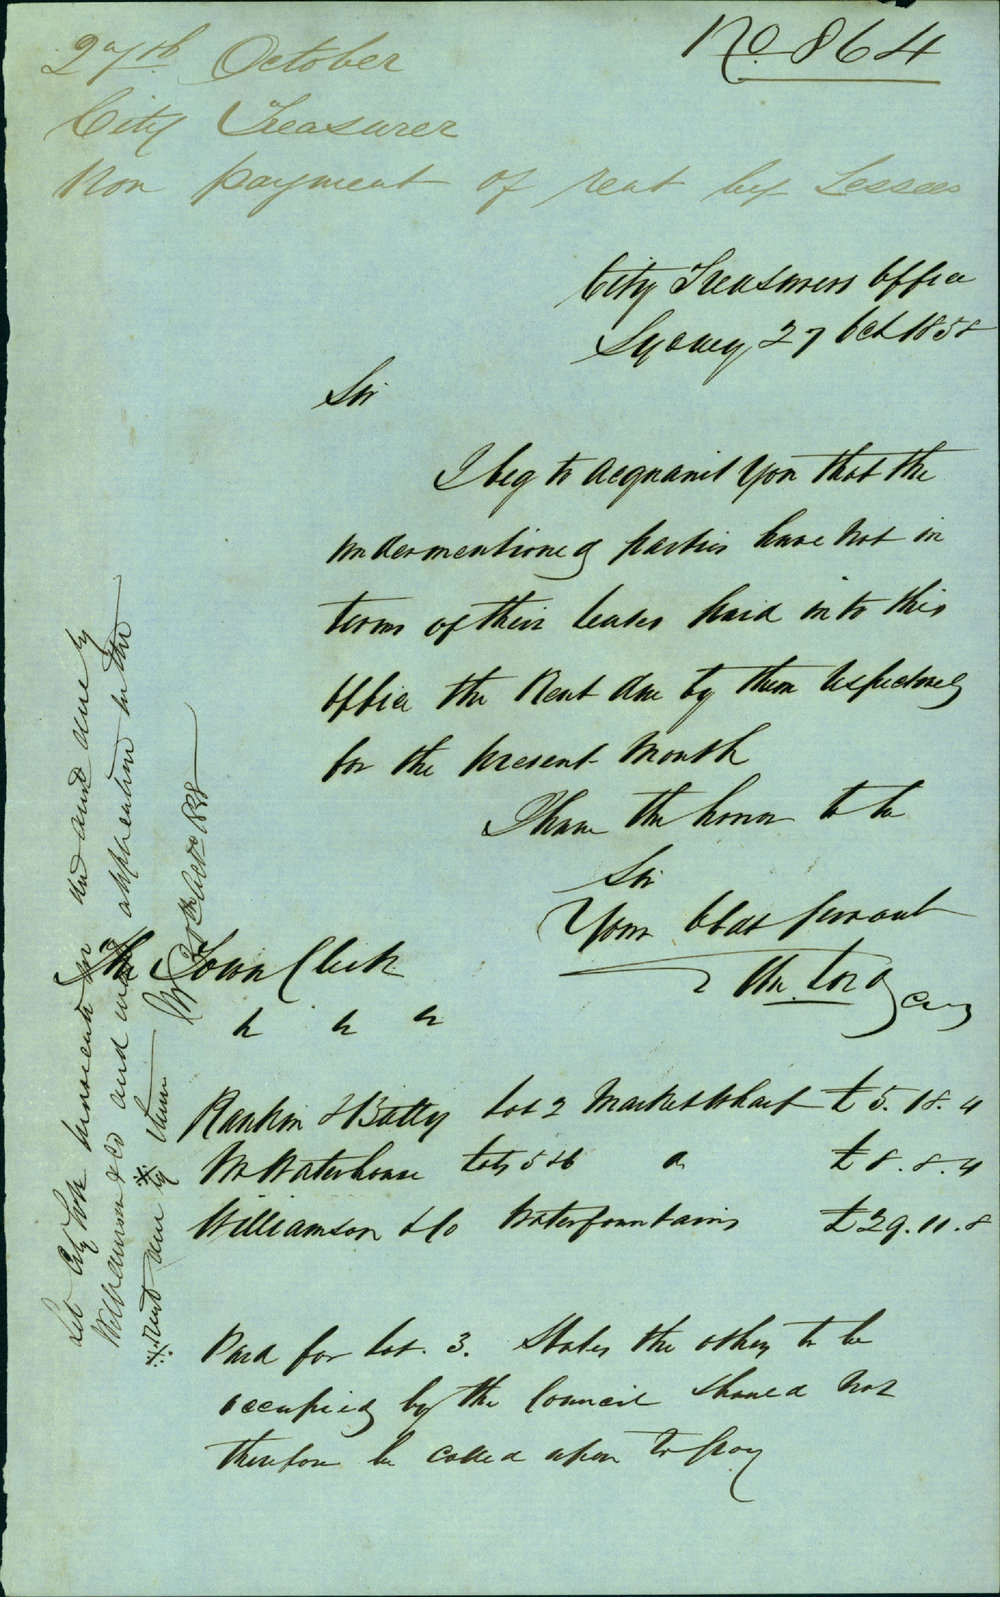 27th October
No. 864
City Treasurer
Non payment of rent by Lessees
City Treasurers Office
Sydney 27 Oct 1858
Sir
I beg to acquaint you that the
undermentioned parties have not in
terms of their leases paid into this
office the Rent due by them respectively
for the present Month
I have the honor to be
Sir
Your Obdt Servant
The Town Clerk
" " "
Rankin & Batty Lot 2 Market Wharf £5.18.4
Mr Waterhouse Lots 5 & 6 " £8.8.4
Williamson & Co Waterfountains £29.11.8
Paid for Lot. 3. States the other to be
occupied by the Council should not
therefore be called upon to pay
Let City Solr for the amt due by
Williamson & Co and in the
rent due by them
Octr 1858